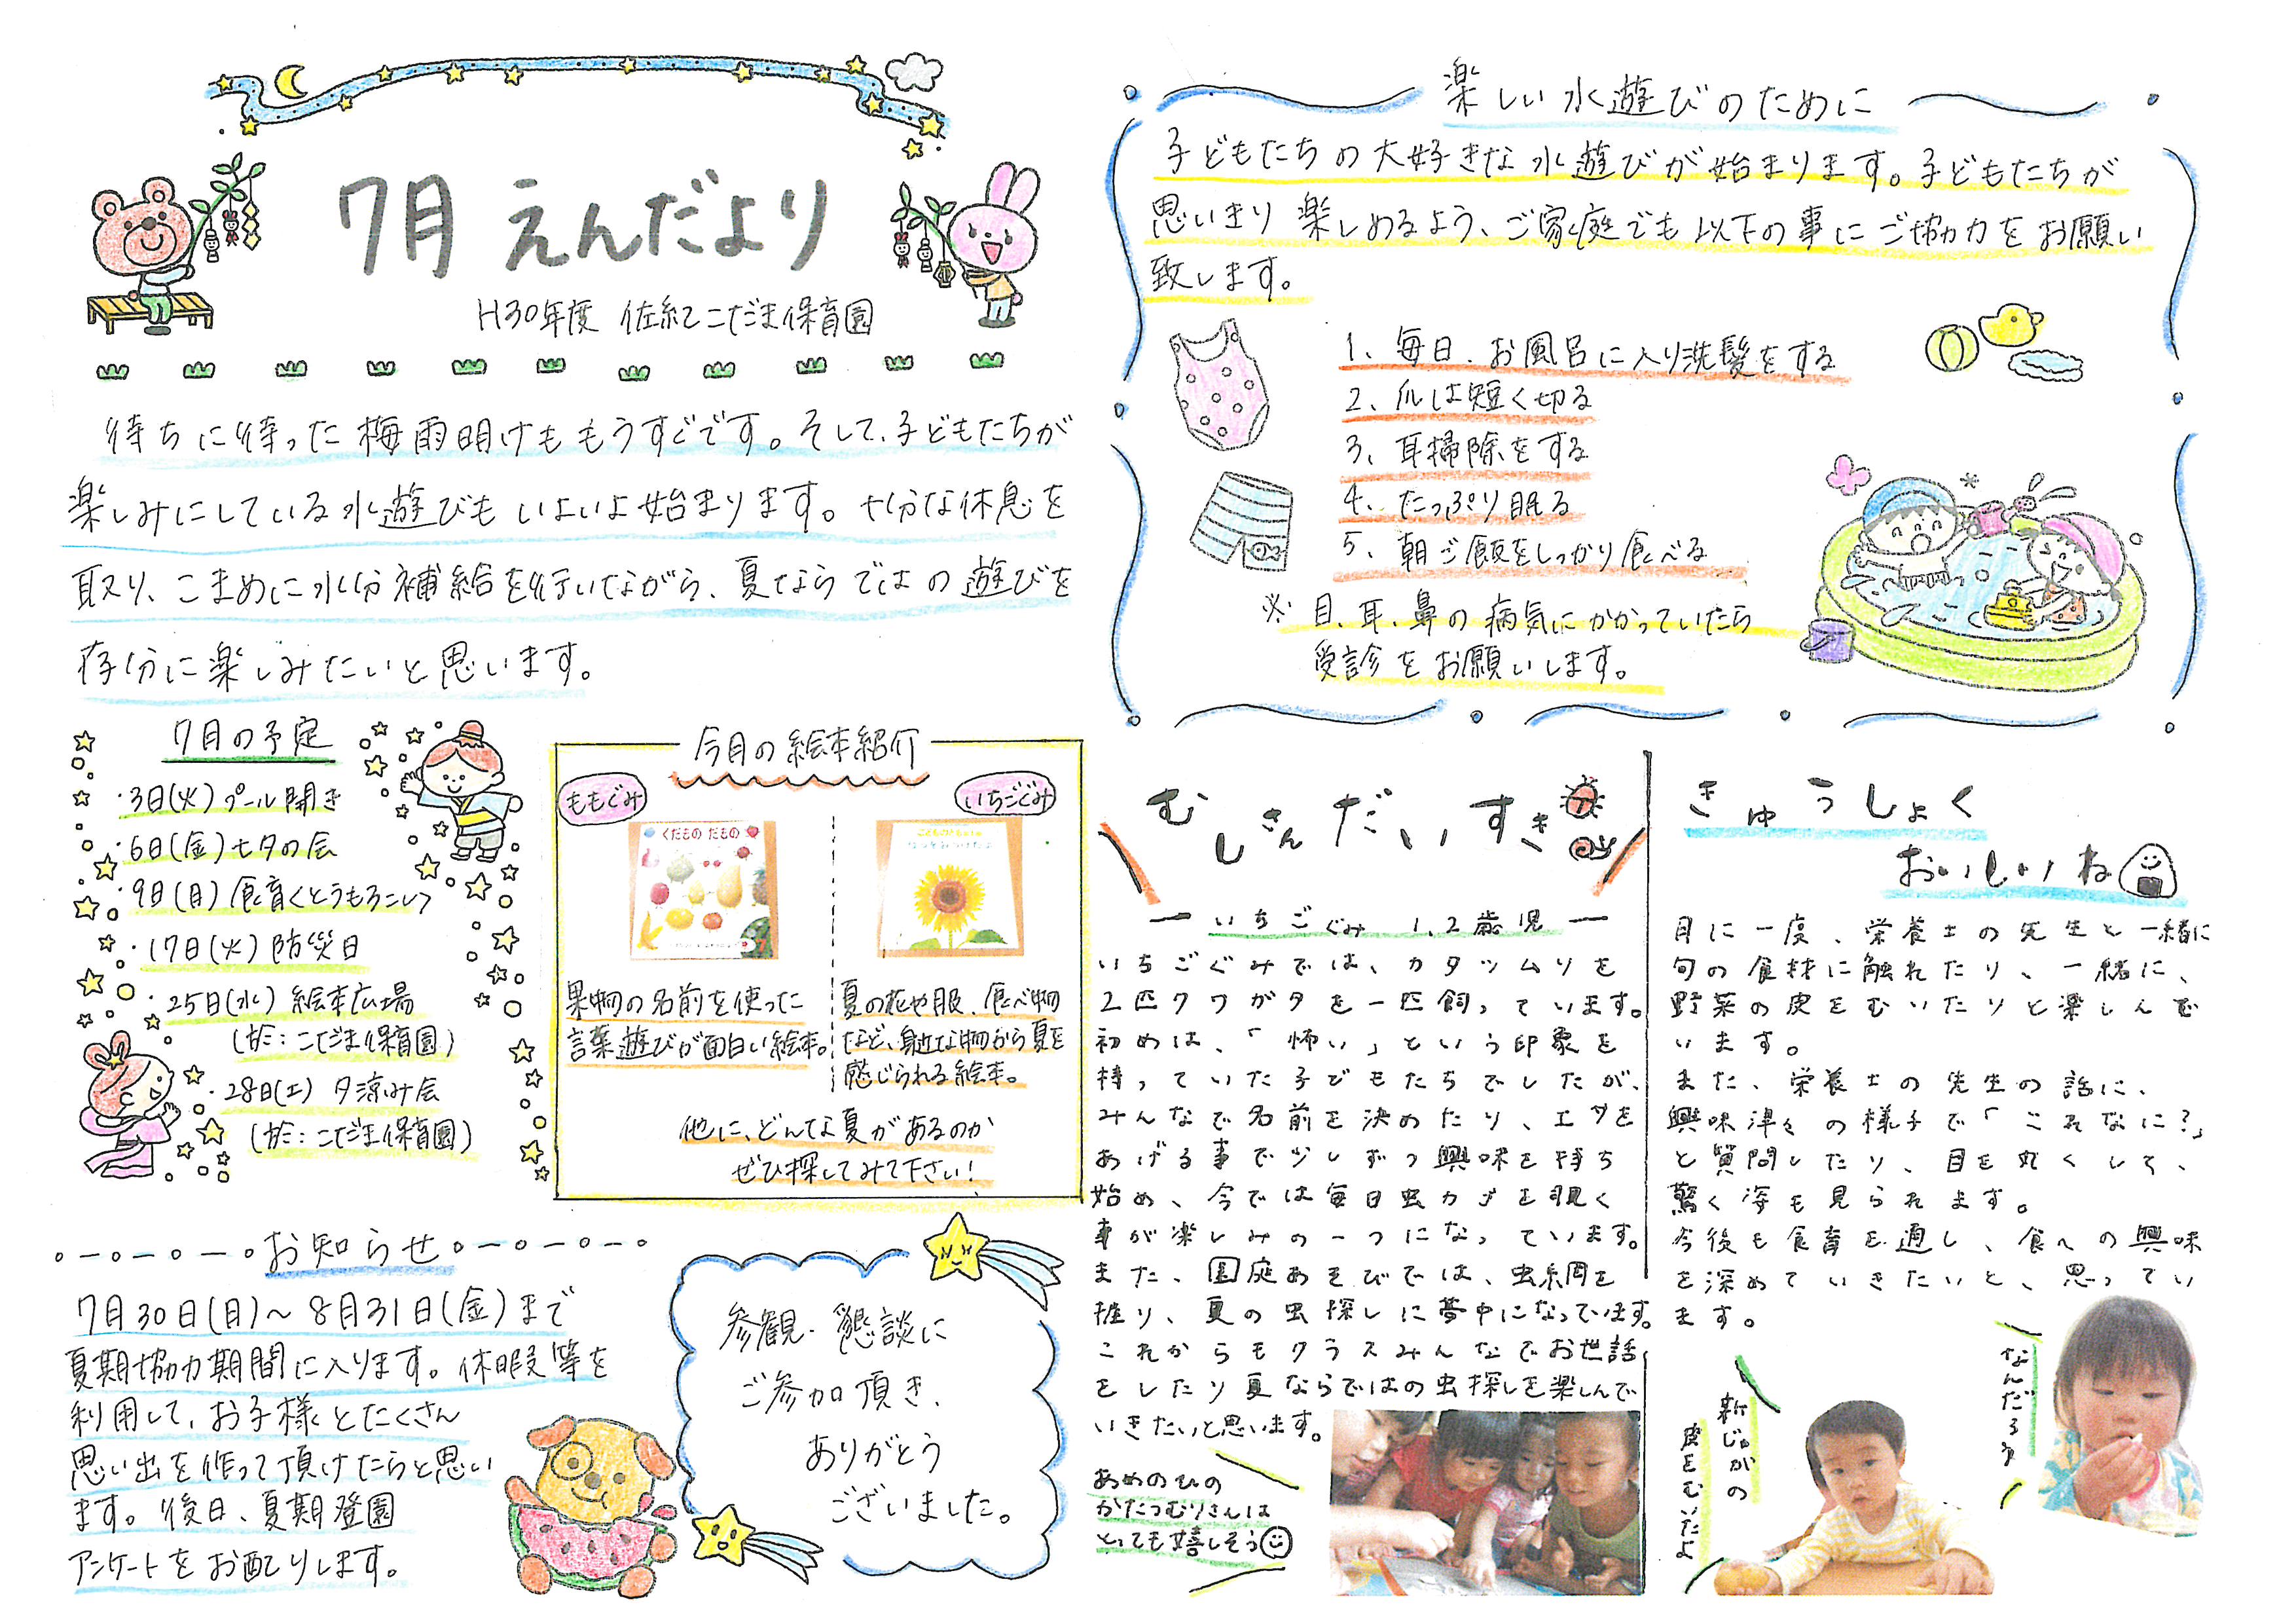 7月 えんだより
H30年度 佐紀こだま保育園
待ちに待った梅雨明けももうすぐです。そして、子どもたちが
楽しみにしている水遊びもいよいよ始まります。十分な休息を
取り、こまめに水分補給を行いながら、夏ならではの遊びを
存分に楽しみたいと思います。
7月の予定
・3日(火)プール開き
・6日(金)七夕の会
・9日(月)食育<とうもろこし>
・17日(火)防災日
・25日(水)絵本広場
(於:こだま保育園)
・28日(土)夕涼み会
(於:こだま保育園)
今月の絵本紹介
ももぐみ
くだもの だもの
果物の名前を使った
言葉遊びが面白い絵本。
いちごぐみ
夏の花や服、食べ物
など、身近な物から夏を
感じられる絵本。
他に、どんな夏があるのか
ぜひ探してみて下さい!
お知らせ
7月30日(月)~8月31日(金)まで
夏期協力期間に入ります。休暇等を
利用して、お子様とたくさん
思い出を作って頂けたらと思い
ます。後日、夏期登園
アンケートをお配りします。
参観・懇談に
ご参加頂き、
ありがとう
ございました。
楽しい水遊びのために
子どもたちの大好きな水遊びが始まります。子どもたちが
思いきり楽しめるよう、ご家庭でも以下の事にご協力をお願い
致します。
1、毎日、お風呂に入り洗髪をする
2、爪は短く切る
3、耳掃除をする
4、たっぷり眠る
5、朝ご飯をしっかり食べる
※目、耳、鼻の病気にかかっていたら
受診をお願いします。
むしさんだいすき
ーいちごぐみ 1、2歳児ー
いちごぐみでは、カタツムリを
2匹クワガタを一匹飼っています。
初めは、「怖い」という印象を
持っていた子どもたちでしたが、
みんなで名前を決めたり、エサを
あげる事で少しずつ興味を持ち
始め、今では毎日虫カゴを覗く
事が楽しみの一つになっています。
また、園庭あそびでは、虫網を
握り、夏の虫探しに夢中になっています。
これからもクラスみんなでお世話
をしたり夏ならではの虫探しを楽しんで
いきたいと思います。
あめのひの
かたつむりさんは
とっても嬉しそう
きゅうしょく
おいしいね
月に一度、栄養士の先生と一緒に
旬の食材に触れたり、一緒に、
野菜の皮をむいたりと楽しんで
います。
また、栄養士の先生の話に、
興味津々の様子で「これなに?」
と質問したり、目を丸くして、
驚く姿も見られます。
今後も食育を通し、食への興味
を深めていきたいと、思ってい
ます。
新じゃがの
皮をむいたよ
なんだろう